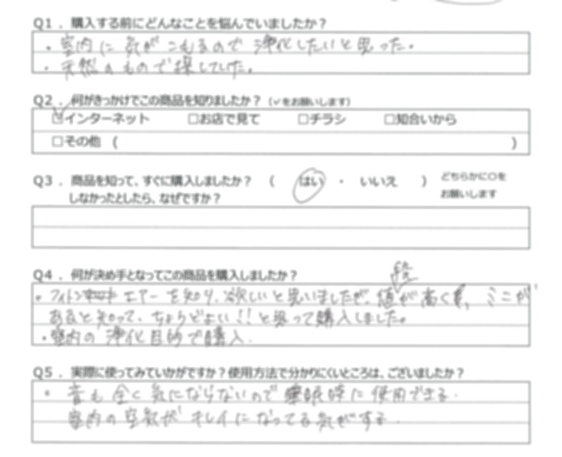 Q1．購入する前にどんなことを悩んでいましたか？
・室内に気がこもるので浄化したいと思った。
・天然のもので探していた。
Q2．何がきっかけでこの商品を知りましたか？（✓をお願いします）
☑インターネット　□お店で見て　□チラシ　□知合いから
□その他（　　）
Q3．商品を知って、すぐに購入しましたか？（　はい　・　いいえ　）どちらかに○を
お願いします
しなかったとしたら、なぜですか？
Q4．何が決め手となってこの商品を購入しましたか？
段
・フィトンエアーを知り、欲しいと思いましたが、値が高く、ミニが
あると知って、ちょうどよい!!と思って購入しました。
・室内の浄化目的で購入．
Q5．実際に使ってみていかがですか？使用方法で分かりにくいところは、ございましたか？
・音も全く気にならないので睡眠時に使用できる．
室内の空気がキレイになってる気がする．